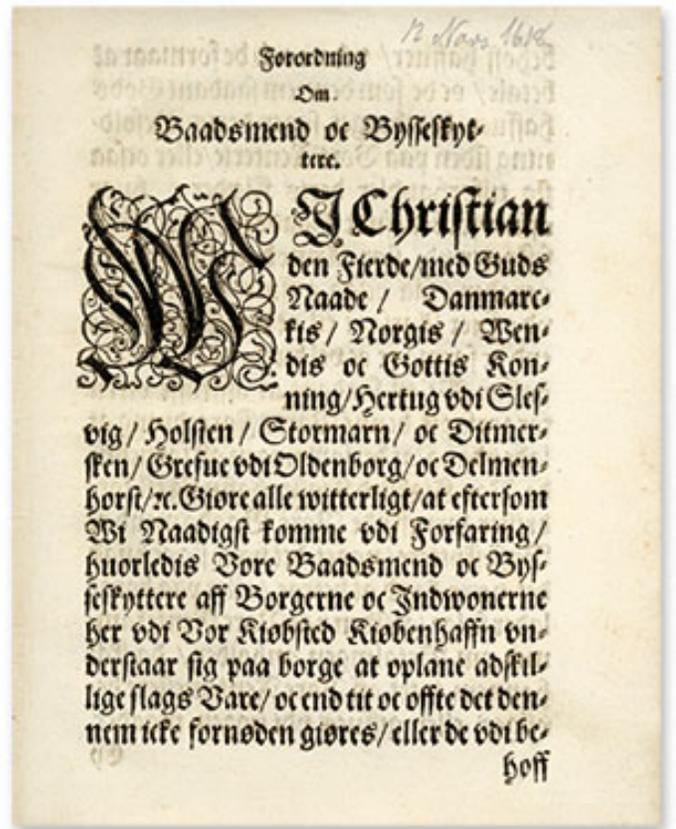 12 Mars 1618
Forordning
Om.
Baadsmend oc Bysseskyt-
tere.
WJ Christian
den Fierde/med Guds
Naade / Danmarc-
kis / Norgis / Wen-
dis oc Gottis Kon-
ning/Hertug vdi Sles-
vig / Holsten / Stormarn / oc Ditmer-
sken / Grefue vdi Oldenborg/oc Delmen-
horst/ꝛc. Giøre alle witterligt/at eftersom
Wi Naadigst komme vdi Forfaring /
huorledis Vore Baadsmend oc Bys-
seskyttere aff Borgerne oc Jndwonerne
her vdi Vor Kiøbsted Kiøbenhaffn vn-
derstaar sig paa borge at oplane adskil-
lige slags Vare/ oc end tit oc offte det den-
nem icke fornøden giøres/ eller de vdi be-
hoff